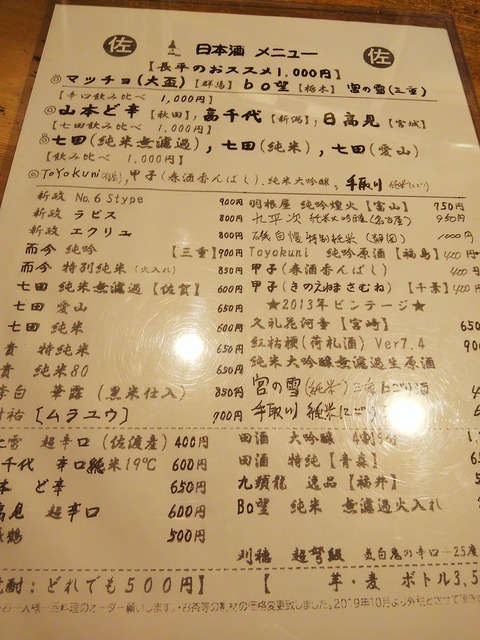 佐 日本酒 メニュー 佐
【長平のおススメ1.000円】
◎マッチョ(大盃)【群馬】bo望【栃木】宮の雪(三重)
【辛口飲み比べ 1,000円】
◎山本ど辛【秋田】,高千代【新潟】,日高見【宮城】
【七田飲み比べ 1.000円】
◎七田(純米無濾過),七田(純米),七田(愛山)
【飲み比べ 1,000円】
◎ToYoKuni,甲子(春酒香んばし)、純米大吟醸,手取川 純米にごり
新政 No.6 Stype 900円
新政 ラピス 800円
新政 エクリュ 800円
而今 純吟 【三重】900円
而今 特別純米(火入れ) 850円
七田 純米無濾過【佐賀】600円
七田 愛山 650円
七田 純米 600円
貴 特純米 650円
貴 純米80 650円
李白 華露(黒米仕入) 850円
村祐【ムラユウ】 700円
羽根屋 純吟煌火【富山】 750円
九平次 純米大吟醸(名古屋) 950円
磯自慢 特別純米(静岡) 1000円
Toyokuni 純吟原酒【福島】400円
甲子(春酒香んばし) 400円
甲子(きのえねまさむね)【千葉】400円
★2013年ビンテージ★
久礼花河童【宮崎】 650
紅桔梗(荷札酒)Ver7.4 900
純米大吟醸無濾過生原酒
宮の雪(純米)三重にごり酒
手取川 純米にごり
雪 超辛口(佐渡産)400円
千代 辛口純米19℃ 600円
本 ど辛 650円
高見 超辛口 600円
鶴 500円
田酒 大吟醸 4割5分
田酒 特純【青森】
九頭龍 逸品【福井】
Bo望 純米 無濾過火入れ
刈穂 超弩級 気白鬼の辛口 -25度
焼酎:どれでも500円】【 芋・麦 ボトル3,5
のオーダー願いします。・お茶等の割材の価格変更致しました。2019年10月より外税とさせて頂き